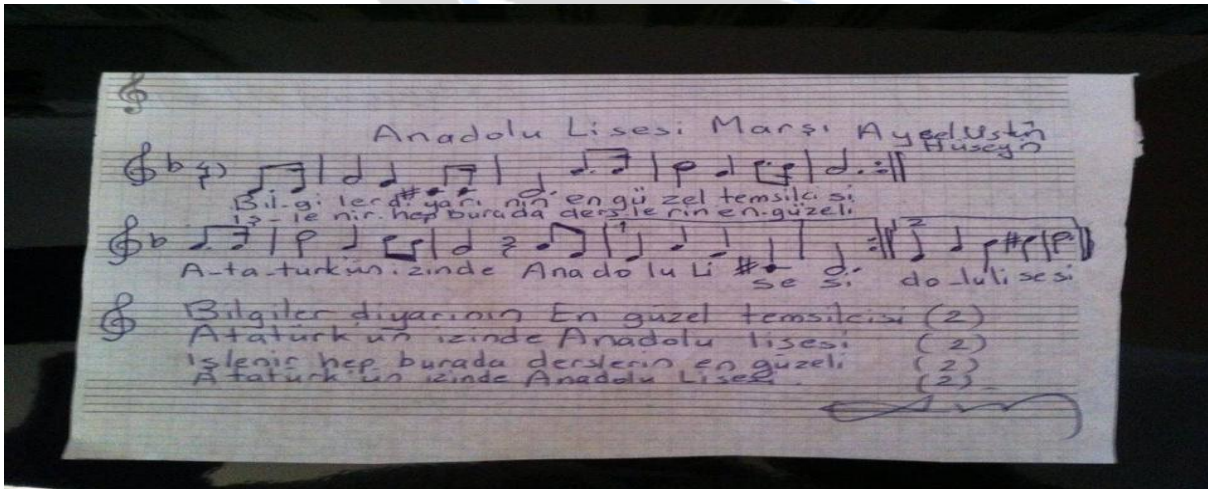 Anadolu Lisesi Marşı Aysel Üstün
Hüseyn
Bil-gi lerdiyarı nın en gü zel temsilci si
İş-le nir hep burada ders le rin en-güzeli
A-ta-türkün izinde Anado lu Li se si do-lulisesi
1 2
Bilgiler diyarının En güzel temsilcisi (2)
Atatürk'ün izinde Anadolu lisesi (2)
işlenir hep burada derslerin en güzeli (2)
Atatürk'ün izinde Anadolu Lisesi (2)